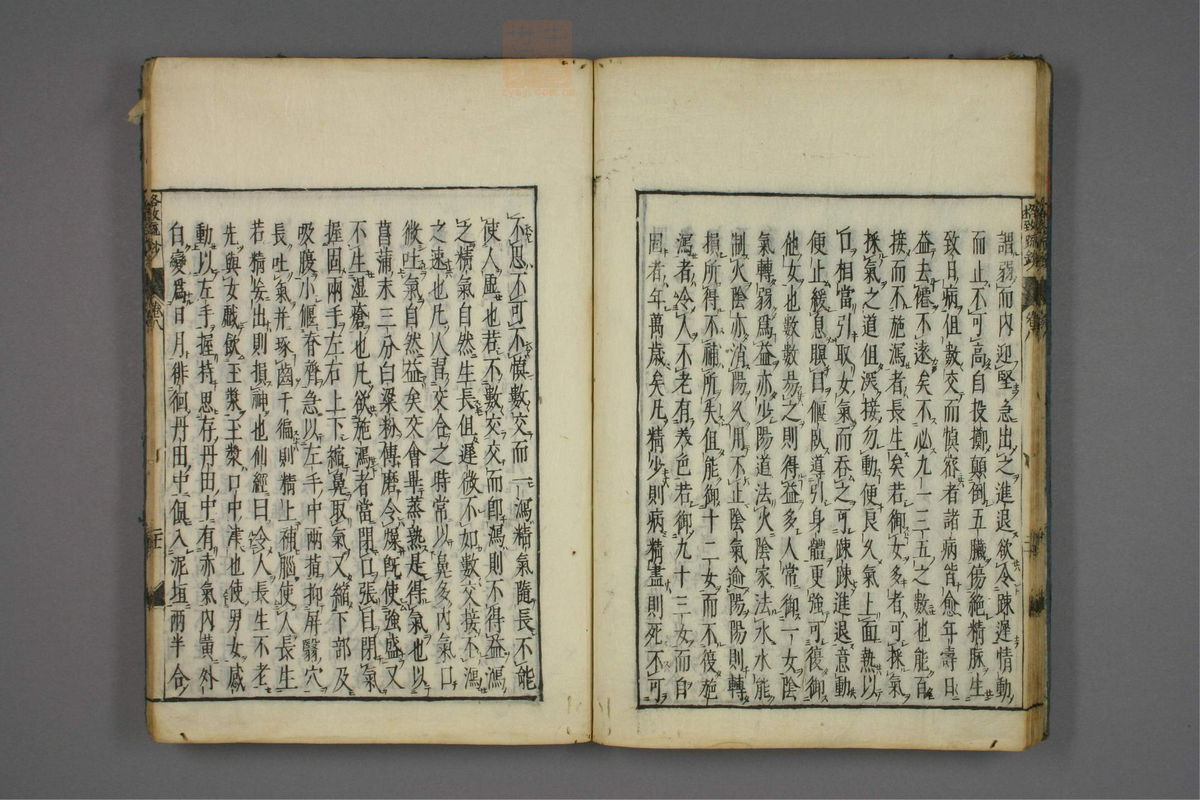 謂弱而內迎堅急出之進退欲令疎遲情動
而止不可高自投擲顛倒五臟傷絕精脉生
致百病但數交而慎泄者諸病皆愈年壽日
益去僊不遠矣不必九一三五之數也能百
接而不施瀉者長生矣若御女多者可採氣
採氣之道但深接勿動使良久氣上面熱以
口相當引取女氣而吞之可疎疎進退意動
便止緩息瞑目偃臥導引身體更強可復御
他女也數數易之則得益多人常御一女陰
氣轉弱爲益亦少陽道法火陰家法水水能
制火陰亦消陽久用不止陰氣逾陽陽則轉
損所得不補所失但能御十二女而不復施
瀉者令人不老有美色若御九十三女而自
固者年萬歲矣凡精少則病精盡則死不可
不思不可不慎數交而一瀉精氣隨長不能
使人虛也若不數交交而即瀉則不得益瀉
之精氣自然生長但遲微不如數交接不瀉
之速也凡人習交合之時常以鼻多內氣口
微吐氣自然益矣交會畢蒸熱是得氣也以
菖蒲末三分白粱粉傅磨令燥既使強盛又
不生濕瘡也凡欲施瀉者當閉口張目閉氣
握固兩手左右上下縮鼻取氣又縮下部及
吸腹小偃脊膂急以左手中兩指抑屏翳穴
長吐氣并琢齒千徧則精上補腦使人長生
若精妄出則損神也仙經曰令人長生不老
先與女戲飲玉漿玉漿口中津也使男女感
動以左手握持思存丹田中有赤氣內黃外
白變爲日月徘徊丹田中俱入泥垣兩半合